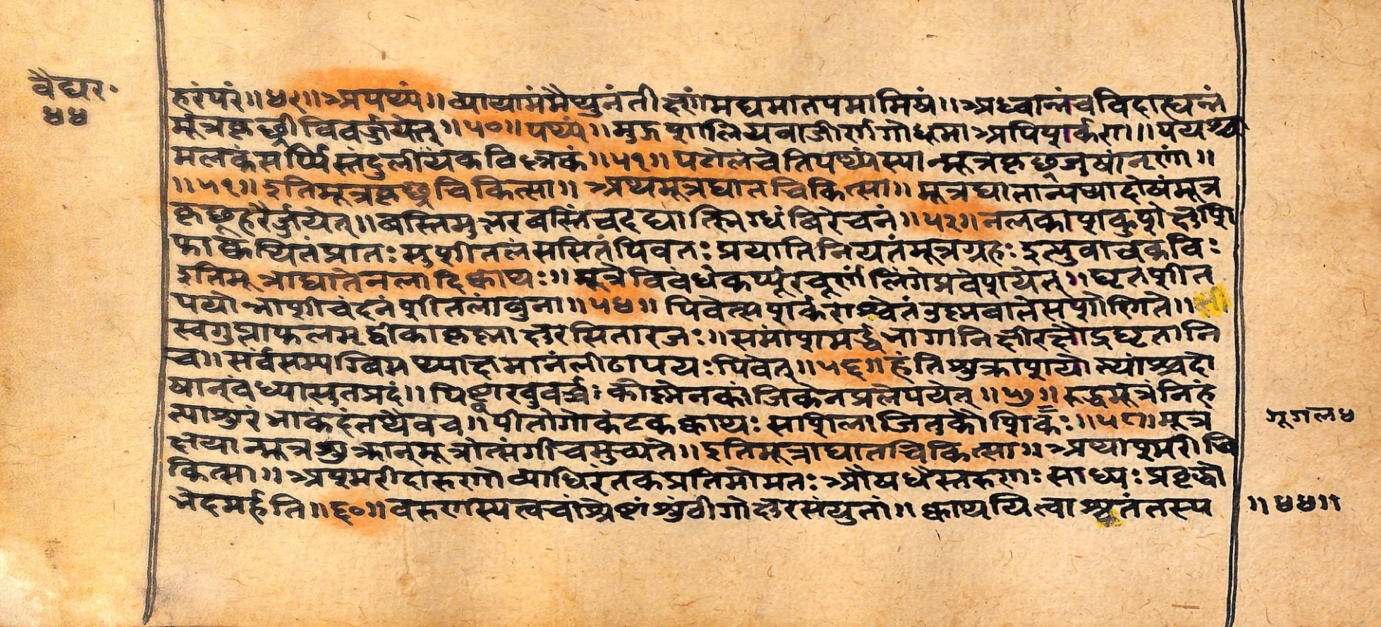 वैद्यर॰
४४
हरंपरं॥४९॥अपथ्यं॥व्यायामंमैथुनंतीक्ष्णंमद्यमातपमामिषं॥अध्वानंचविदाह्यन्नं
मूत्रकृछ्रीविवर्जयेत्॥५०॥पथ्यं॥मुद्गशालियवाजीर्णगोधूमाअपिशर्करा॥पयश्चा
मलकंसर्प्पिस्तंदुलीयक॥५१॥पटोलंचेतिपथ्यंस्यान्मूत्रकृछ्रजुषांनृणां॥
॥५१॥इतिमूत्रकृछ्रचिकित्सा॥अथमूत्रघातचिकित्सा॥मूत्रघातान्यथादोषंमूत्र
कृछ्रहरैर्जयेत्॥बस्तिमुत्तरबस्तिंचदद्यात्स्निग्धंविरेचनं॥५२॥नलकाशकुशेक्षुशि
फाक्वथितंप्रातःसुशीतलंससितंपिवतःप्रयातिनियतंमूत्रग्रहःइत्युवाचकविः
इतिमूत्राघातेनलादिक्वाथः॥मूत्रेविबंधेकर्प्पूरचूर्णंलिंगेप्रवेशयेत्॥घृतशीत
पयोन्नाशीचंदनंशीतलांबुना॥५४॥पिवेत्सशर्कराश्वेतंउष्णबातेसशोणिते॥
स्वगुप्ताफलमृद्वीकाकृष्णाक्षुरसितारजः॥समांशमर्द्धभागानिक्षीरक्षौद्रघृतानि
च॥सर्वसम्यग्विमथ्याक्षमानंलीढापयःपिवेत्॥५६॥हंतिशुक्राशयोत्थांश्चदो
षान्वंध्यासुतप्रदं॥पिष्ट्वाखुवर्च्चःकोष्णेनकांजिकेनप्रलेपयेत्॥५७॥रुद्धमूत्रंनिहं
त्याशुरंभाकंदंतथैवच॥पीतोगोकंटकक्वाथःसशिलाजितकौशिकः॥५८॥मूत्र
क्षयान्मूत्रशुक्रान्मूत्रोत्संगीचमुच्यते॥इतिमूत्राघातचिकित्सा॥अथाश्मरीचि
कित्सा॥अश्मरीदारुणोव्याधिरंतकप्रतिमोमतः॥औषधैस्तरुणःसाध्यःप्रवृद्धो
भेदमर्हति॥६०॥वरुणस्यत्वचांश्रेष्टांशुंठीगोक्षुरसंयुतां॥क्वाथयित्वाशृतंतस्य
मूगल४
॥४४॥